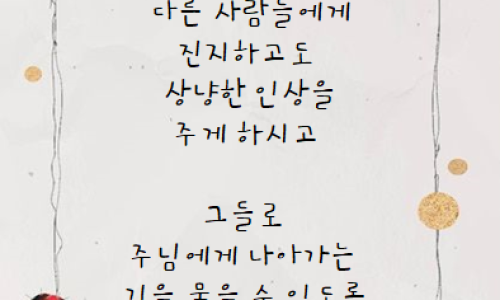 다른 사람들에게
진지하고도
상냥한 인상을
주게 하시고
그들로
주님에게 나아가는
길을 묻을 수 있도록